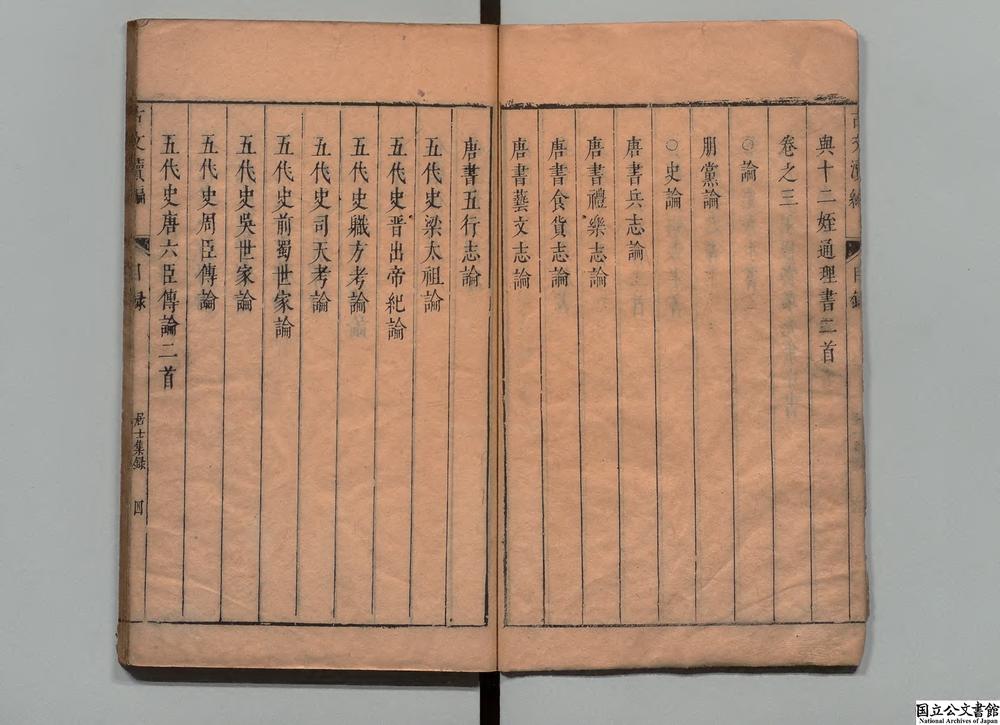 與十二姪通理書二首
卷之三
○論
朋黨論
○史論
唐書兵志論
唐書禮樂志論
唐書食貨志論
唐書藝文志論
唐書五行志論
五代史梁太祖論
五代史晉出帝紀論
五代史職方考論
五代史司天考論
五代史前蜀世家論
五代史吳世家論
五代史周臣傳論
五代史唐六臣傳論二首
目錄
居士集錄
四
国立公文書館
National Archives of Japan